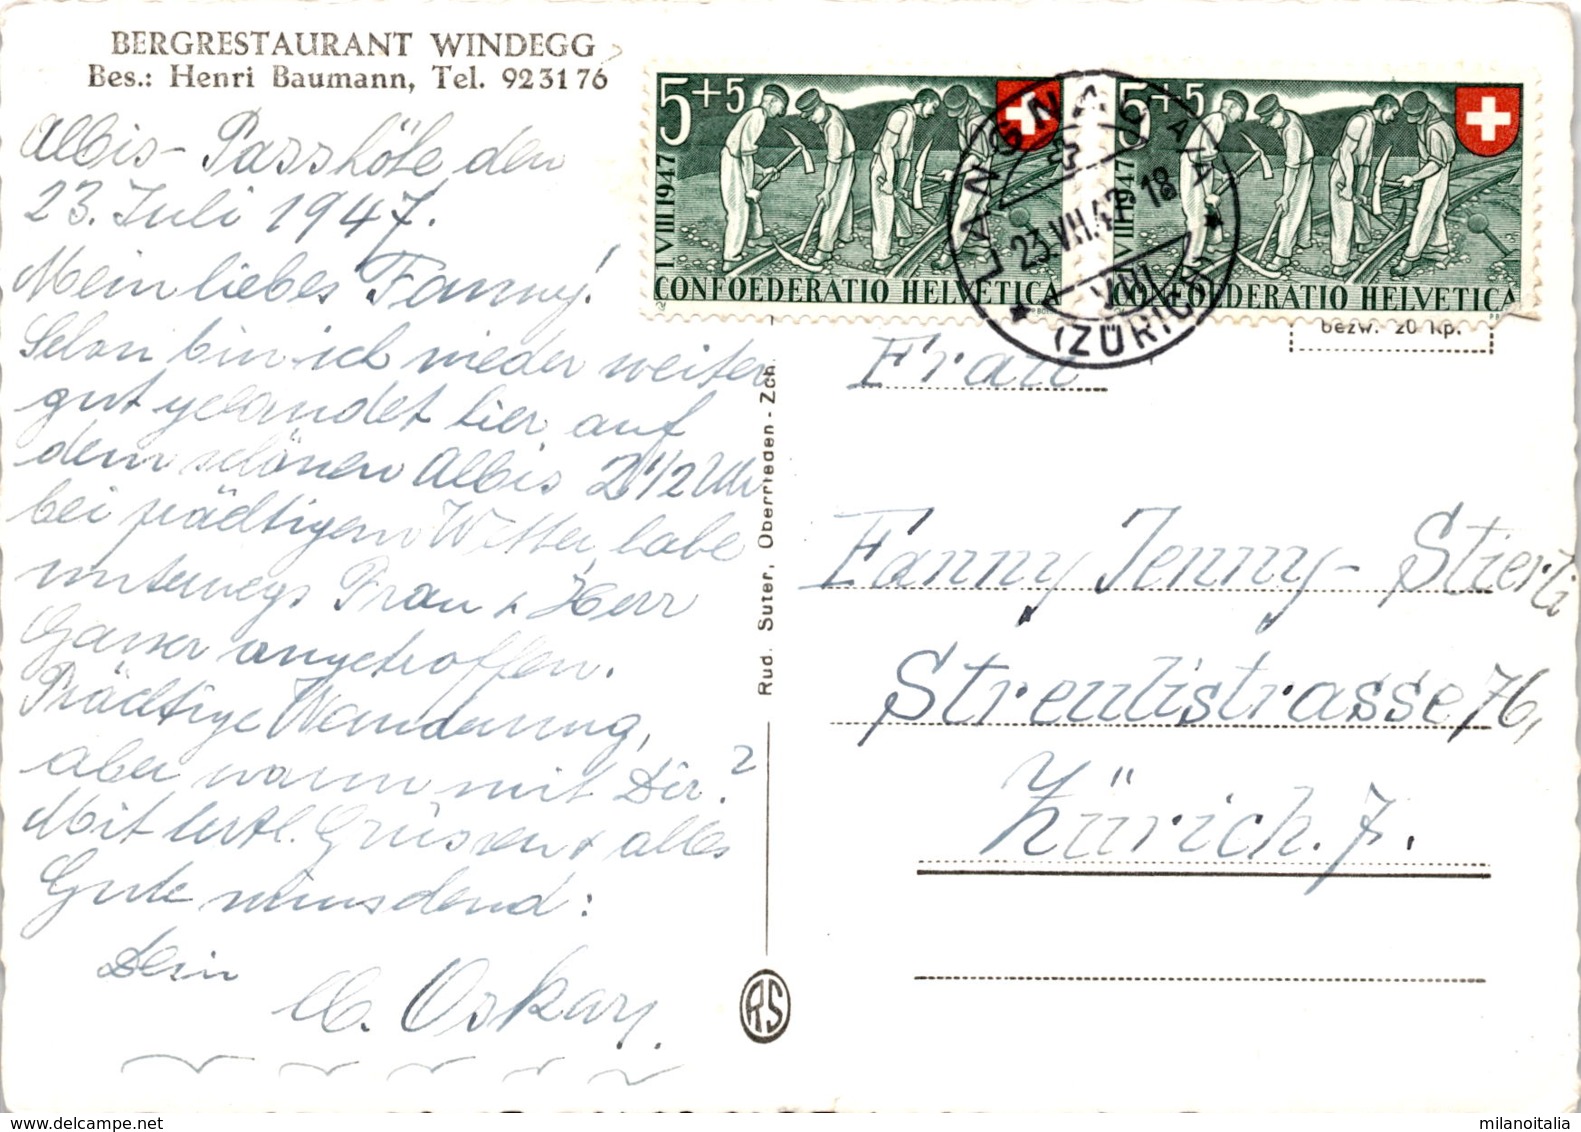 BERGRESTAURANT WINDEGG
Bes.: Henri Baumann, Tel. 92 31 76
Albis-Passhöhe den
23. Juli 1947.
Mein liebes Fanny!
Schon bin ich wieder weiter
gut gelandet hier auf
dem schönen Albis 2 1/2 Uhr
bei prächtigem Wetter, habe
unterwegs Frau & Herr
Gasser angetroffen.
Prächtige Wanderung,
aber wann mit Dir?
Mit herzl. Grüssen & alles
Gute wünschend:
Dein
Oskar.
5+5
I.VIII 1947
CONFOEDERATIO HELVETICA
5+5
VIII 1947
CONFOEDERATIO HELVETICA
LANGNAU A. A.
23.VII.47 18
(ZÜRICH)
bezw. 20 Rp.
Frau
Fanny Jenny-Stierli
Streulistrasse 76,
Zürich. 7.
Rud. Suter, Oberrieden - Zch.
RS
milanoitalia